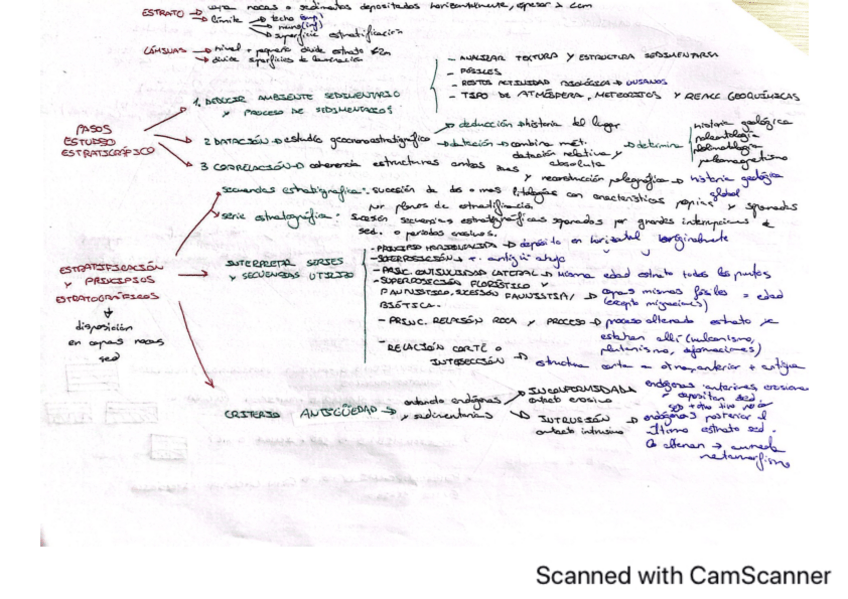 ESTRATO → capa rocas o sedimentos depositados horizontalmente, espesor ≥ 1cm
→ límite → techo (sup)
→ muro (inf)
→ superficie estratificación
LÁMINAS → nivel + pequeño divide estrato
→ divide superficies de laminación
PASOS
ESTUDIO
ESTRATIGRÁFICO
1. DEDUCIR AMBIENTE SEDIMENTARIO
Y PROCESO DE SEDIMENTARIOS
- ANALIZAR TEXTURA Y ESTRUCTURA SEDIMENTARIA
- FÓSILES
- RESTOS ACTIVIDAD BIOLÓGICA → GUSANOS
- TIPO DE ATMÓSFERA, METEORITOS Y REACC GEOQUÍMICAS
2 DATACIÓN → estudio geocronoestratigráfico
→ deducción → historia del lugar
→ datación → combina mét.
datación relativa y
absoluta
→ determina
historia geológica
paleontología
paleomagnetismo
3 CORRELACIÓN → coherencia estructuras ambas
y reconstrucción paleográfica → historia geológica
global
ESTRATIFICACIÓN
Y PRINCIPIOS
ESTRATOGRÁFICOS
disposición
en capas rocas
sed
secuencias estratigráfica: sucesión de dos o más litologías con características propias y separadas
por planos de estratificación
serie estratográfica: sucesión secuencias estratigráficas separadas por grandes interrupciones de
sed. o periodos erosivos.
INTERPRETAR SERIES
Y SECUENCIAS UTILIZO
- PRINCIPIO HORIZONTALIDAD → depósito en horizontal originalmente
- SUPERPOSICIÓN → + antiguo abajo
- PRINC. CONTINUIDAD LATERAL → misma edad estrato todos los puntos
- SUPERPOSICIÓN FLORÍSTICO Y
FAUNÍSTICO, SUCESIÓN FAUNÍSTICA/
BIÓTICA.
→ capas mismos fósiles = edad
(excepto migraciones)
- PRINC. RELACIÓN ROCA Y PROCESO → proceso alterado estrato ya
estaban allí (vulcanismo,
plutonismo, deformaciones)
- RELACIÓN CORTE O
INTERSECCIÓN → estructura corta a otra, anterior + antigua
CRITERIO ANTIGÜEDAD → contacto endógenas
y sedimentarias
→ INCONFORMIDAD
contacto erosivo
endógenas anteriores, erosionan
y depositan sed
→ INTRUSIÓN
contacto intrusivo
→ endógenas posterior al
último estrato sed.
alteran → aureola
metamorfismo
Scanned with CamScanner